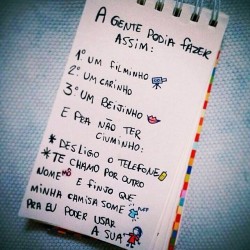 A GENTE PODIA FAZER
ASSIM:
1º UM FILMINHO
2º UM CARINHO
3º UM BEIJINHO
E PRA NÃO TER
CIUMINHO:
* DESLIGO O TELEFONE
* TE CHAMO POR OUTRO
NOME E FINJO QUE
MINHA CAMISA SOME PUFF
PRA EU PODER USAR
A SUA